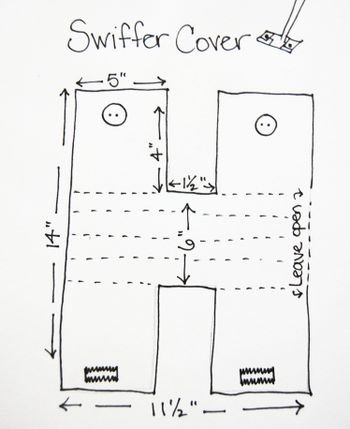 Swiffer Cover
5"
4"
1½"
14"
6"
Leave open
11½"